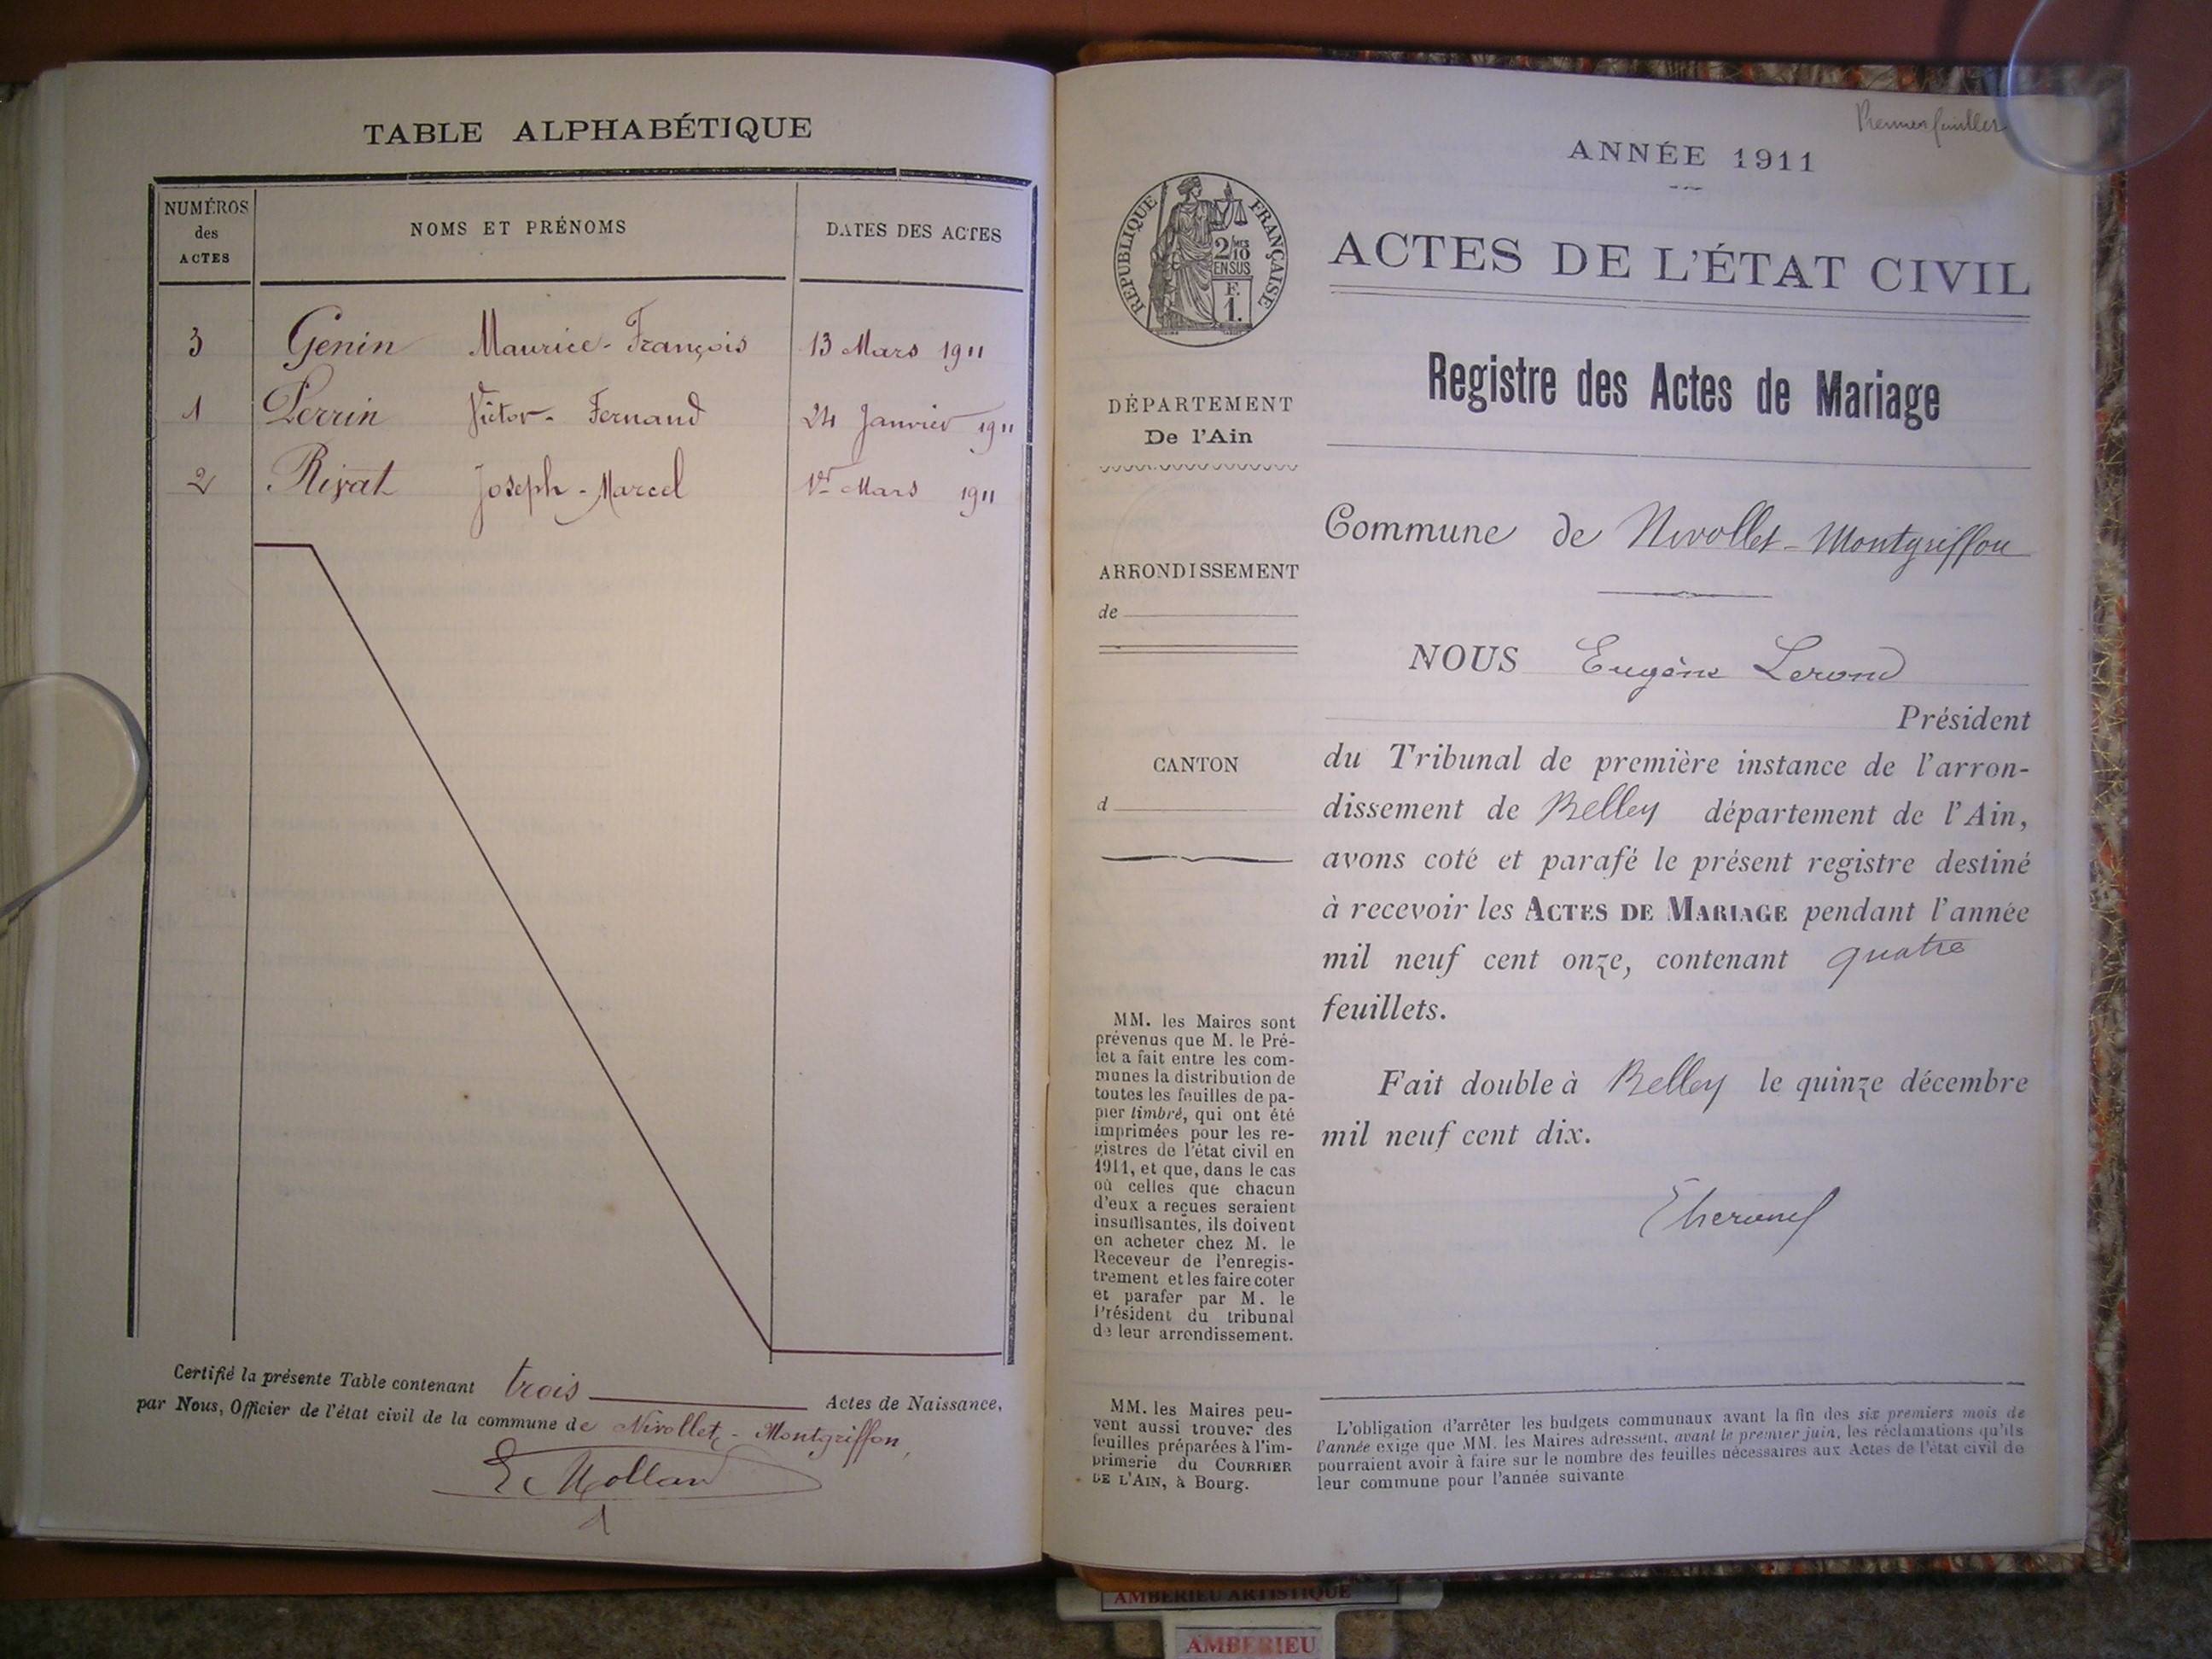 TABLE ALPHABÉTIQUE
NUMÉROS
des
ACTES
NOMS ET PRÉNOMS
DATES DES ACTES
3 Genin Maurice-François 13 Mars 1911
1 Perrin Victor-Fernand 24 Janvier 1911
2 Rivat Joseph-Marcel 1er Mars 1911
Certifié la présente Table contenant trois Actes de Naissance,
par Nous, Officier de l'état civil de la commune de Nivollet-Montgriffon,
Premier feuillet
ANNÉE 1911
RÉPUBLIQUE FRANÇAISE
2/10
EN SUS
F.
1.
ACTES DE L'ÉTAT CIVIL
Registre des Actes de Mariage
DÉPARTEMENT
De l'Ain
ARRONDISSEMENT
de
CANTON
d
MM. les Maires sont
prévenus que M. le Pré-
fet a fait entre les com-
munes la distribution de
toutes les feuilles de pa-
pier timbré, qui ont été
imprimées pour les re-
gistres de l'état civil en
1911, et que, dans le cas
où celles que chacun
d'eux a reçues seraient
insuffisantes, ils doivent
en acheter chez M. le
Receveur de l'enregis-
trement et les faire coter
et parafer par M. le
Président du tribunal
de leur arrondissement.
MM. les Maires peu-
vent aussi trouver des
feuilles préparées à l'im-
primerie du COURRIER
DE L'AIN, à Bourg.
Commune de Nivollet-Montgriffon
NOUS Eugène Lerond
Président
du Tribunal de première instance de l'arron-
dissement de Belley département de l'Ain,
avons coté et parafé le présent registre destiné
à recevoir les ACTES DE MARIAGE pendant l'année
mil neuf cent onze, contenant quatre
feuillets.
Fait double à Belley le quinze décembre
mil neuf cent dix.
L'obligation d'arrêter les budgets communaux avant la fin des six premiers mois de
l'année exige que MM. les Maires adressent, avant le premier juin, les réclamations qu'ils
pourraient avoir à faire sur le nombre des feuilles nécessaires aux Actes de l'état civil de
leur commune pour l'année suivante
AMBERIEU ARTISTIQUE
AMBERIEU